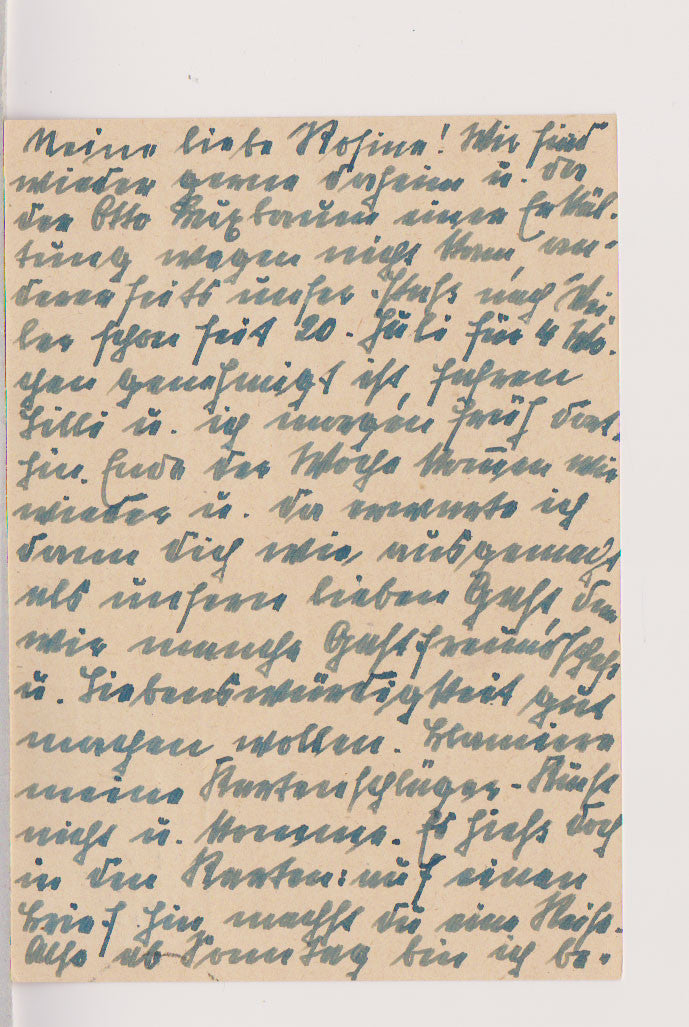 Meine liebe Rosine! Wir sind
wieder gerne daheim u. da
der Otto Buxbaum einer Erkäl-
tung wegen nicht kam, an-
derenseits unser Paß nach
ler schon seit 20. Juli für 4 Wo-
chen genehmigt ist, fahren
Lilli u. ich morgen früh dort-
hin. Ende der Woche kommen wir
wieder u. da erwarte ich
dann dich wie ausgemacht
als unsern lieben Gast, dem
wir manche Gastfreundschaft
u. Liebenswürdigkeit gut
machen wollen. Blamiere
meine Kartenschläger-Kunst
nicht u. komme. Es hieß doch
in den Karten: auf einen
Brief hin machst du eine Reise.
Also ab Sonntag bin ich be-